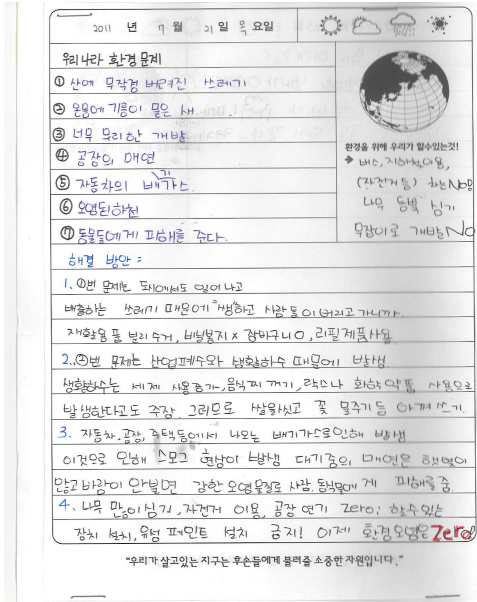 2011 년 7 월 21 일 목 요일
우리나라 환경문제
① 산에 무작정 버려진 쓰레기
② 온몸에 기름이 묻은 새.
③ 너무 무리한 개발.
④ 공장의 매연
⑤ 자동차의 배기가스.
⑥ 오염된하천
⑦ 동물들에게 피해를 준다.
환경을 위해 우리가 할수있는것!
→ 버스, 지하철이용,
(자전거 등) 차는No동
나무 듬뿍 심기
무작위로 개발No
해결 방안 =
1. ①번 문제는 도시에서도 일어나고
배출하는 쓰레기 때문에 생하고 사람들이 버리고가니까
재활용품 분리수거, 비닐봉지 x 장바구니 O, 리필제품사용
2. ②번 문제는 산업폐수와 생활하수 때문에 발생
생활하수는 세제 사용증가, 음식찌꺼기, 락스나 화학약품 사용으로
발생한다고도 주장. 그러므로 쌀알씻고 꽃 물주기등 아껴쓰기.
3. 자동차, 공장, 주택등에서 나오는 배기가스로인해 발생
이것으로 인해 스모그 현상이 발생 대기중의 매연은 햇볕이
많고 바람이 안불면 강한 오염물질로 사람, 동식물에게 피해를줌.
4. 나무 많이심기, 자전거 이용, 공장 연기 Zero, 할수있는
장치 설치, 유성 페인트 설치 금지! 이제 환경오염은 Zero!
"우리가 살고있는 지구는 후손들에게 물려줄 소중한 자원입니다."